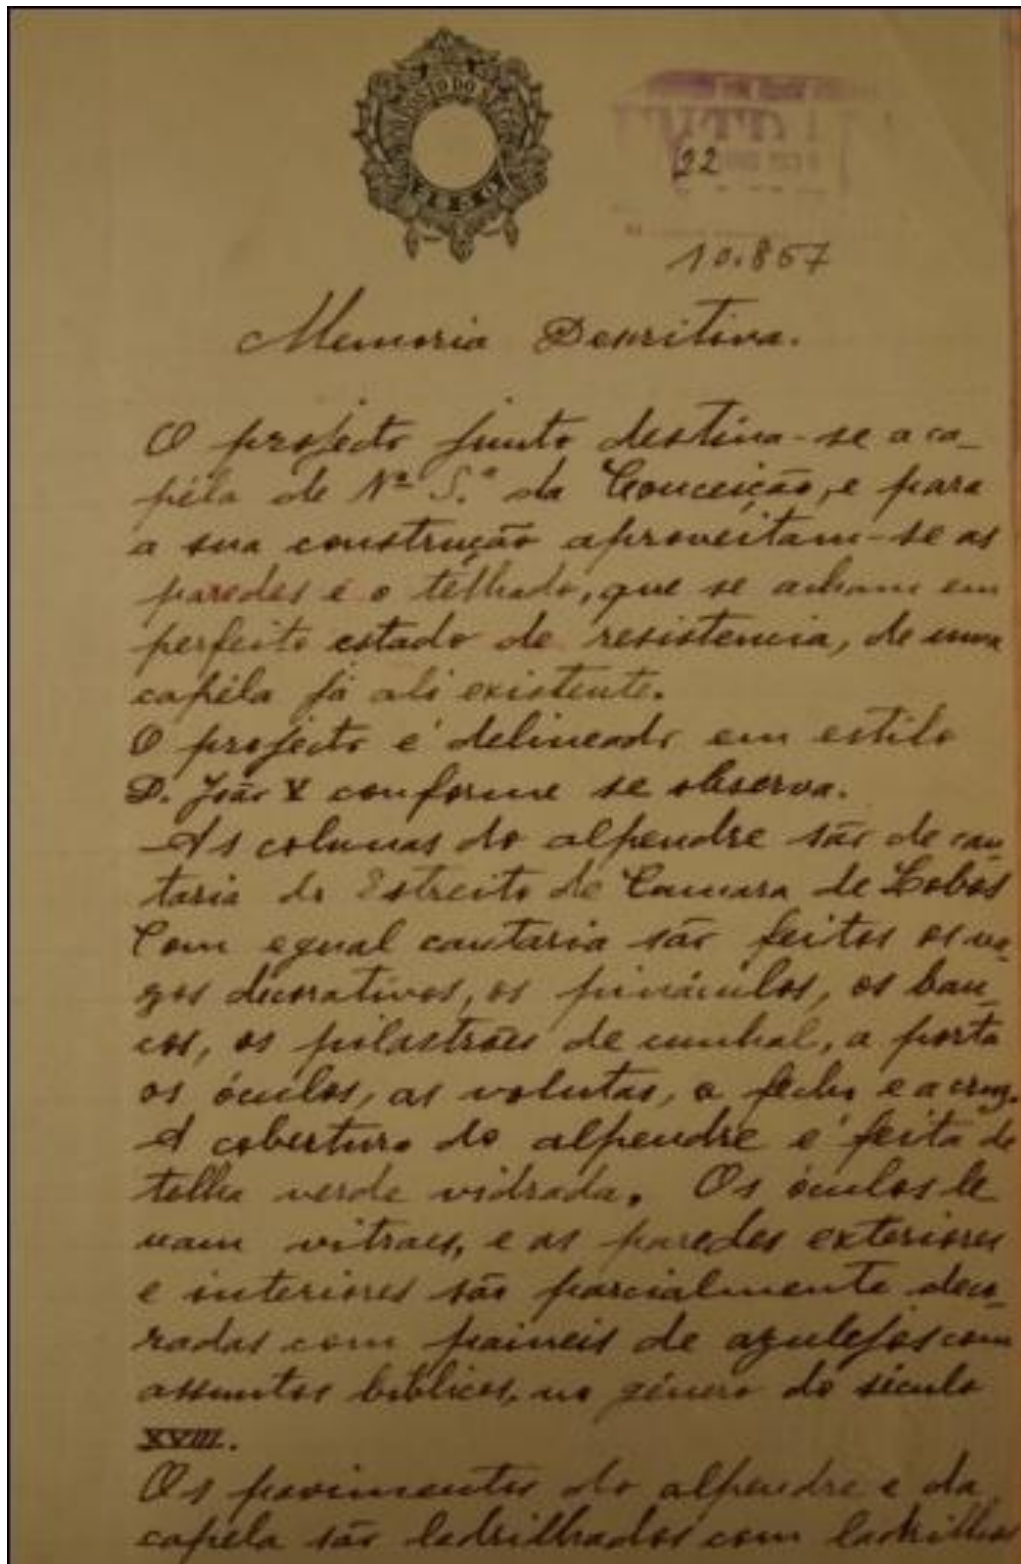 IMPOSTO DO SELLO
92
10.867
Memoria Descritiva.
O projecto junto destina-se a ca-
péla de Nª S.ª da Conceição, e para
a sua construção aproveitam-se as
paredes e o telhado, que se acham em
perfeito estado de resistencia, de uma
capéla já ali existente.
O projecto é delineado em estilo
D. João V conforme se observa.
As colunas do alpendre são de can
taria do Estreito de Camara de Lobos
Com egual cantaria são feitos os va-
zos decorativos, os pináculos, os ban-
cos, os pilastrões de cunhal, a porta
os óculos, as volutas, o fecho e a cruz.
A cobertura do alpendre é feita de
telha verde vidrada. Os óculos le
vam vitraes, e as paredes exteriores
e interiores são parcialmente deco-
radas com paineis de azulejos com
assuntos biblicos, no género do século
XVIII.
Os pavimentos do alpendre e da
capela são ladrilhados com ladrilhos